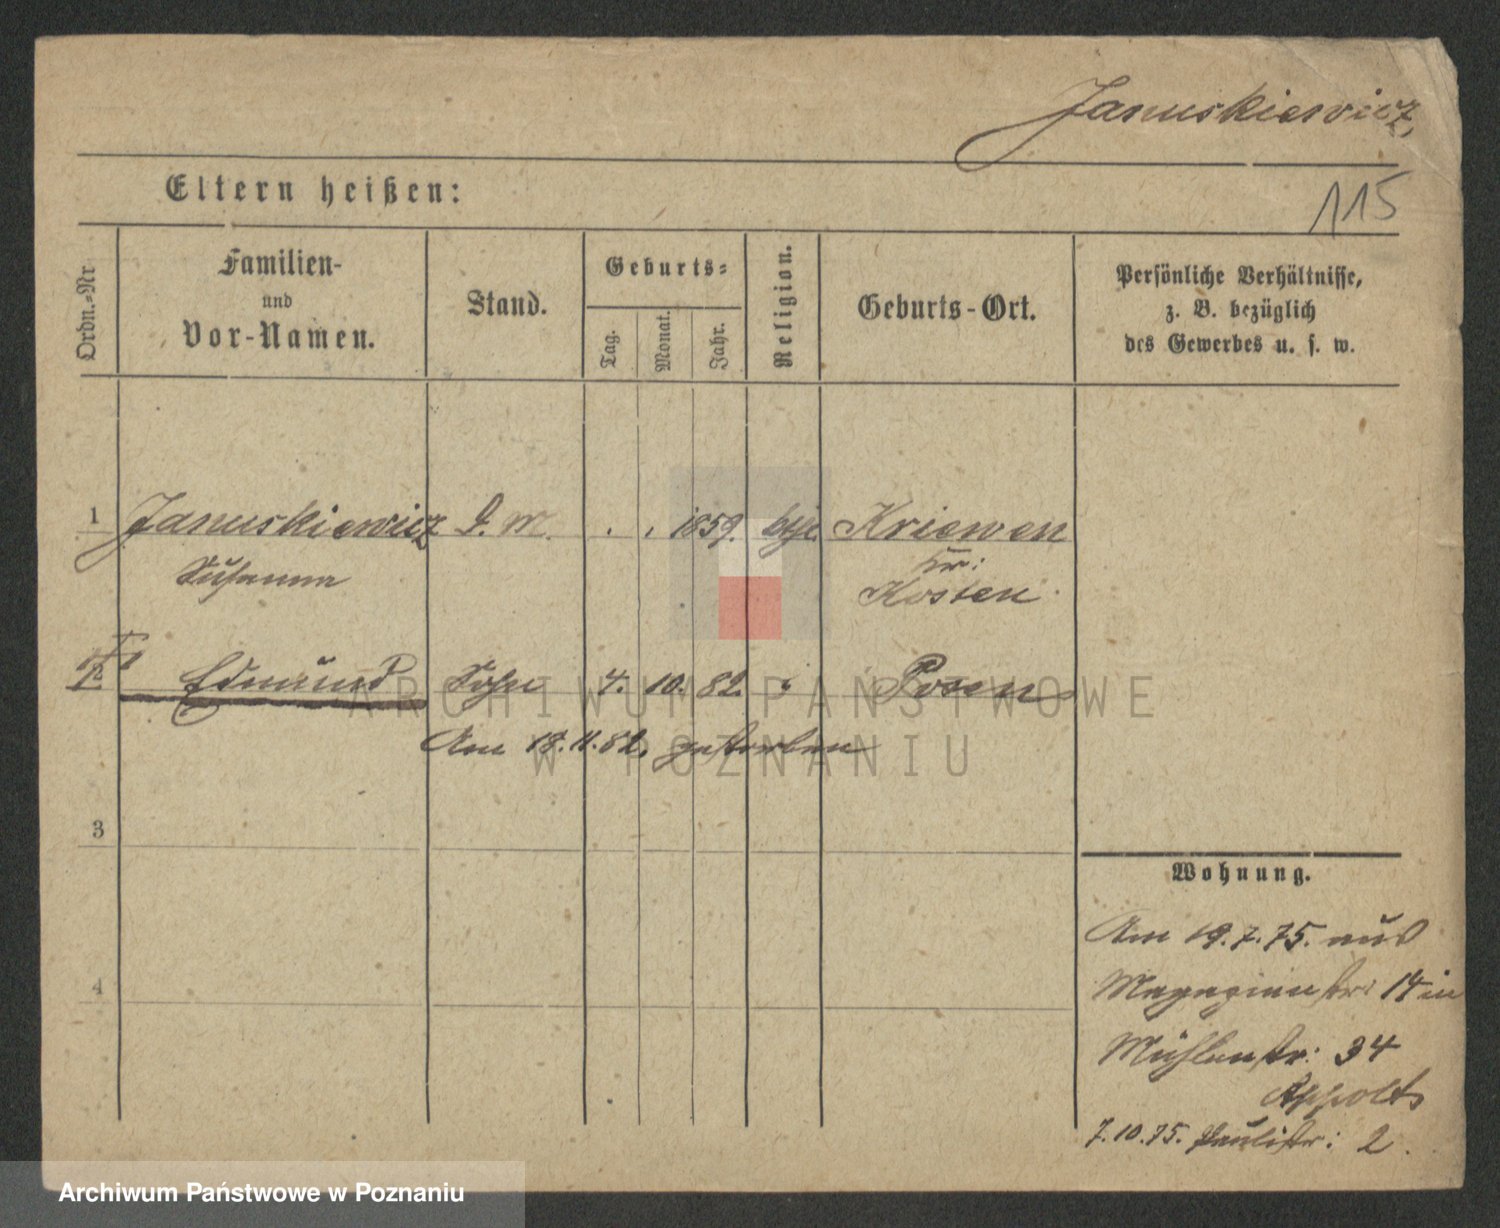 Januskiewicz
115
Eltern heißen:
Ordn.-Nr
Familien-
und
Vor-Namen.
Stand.
Geburts-
Tag.
Monat.
Jahr.
Religion.
Geburts-Ort.
Persönliche Verhältnisse,
z. B. bezüglich
des Gewerbes u. s. w.
1 Januskiewicz D. M. . . 1859. Kriewen
Susanna Kr:
Kosten
2 Edmund Sohn 4. 10. 82. Posen
Am 18.11.82. gestorben
3
4
Wohnung.
Am 19.7.75. aus
Magazinstr: 14 in
Mühlenstr: 34
Appolt
7.10.75. Paulistr: 2.
ARCHIWUM PAŃSTWOWE
W POZNANIU
Archiwum Państwowe w Poznaniu